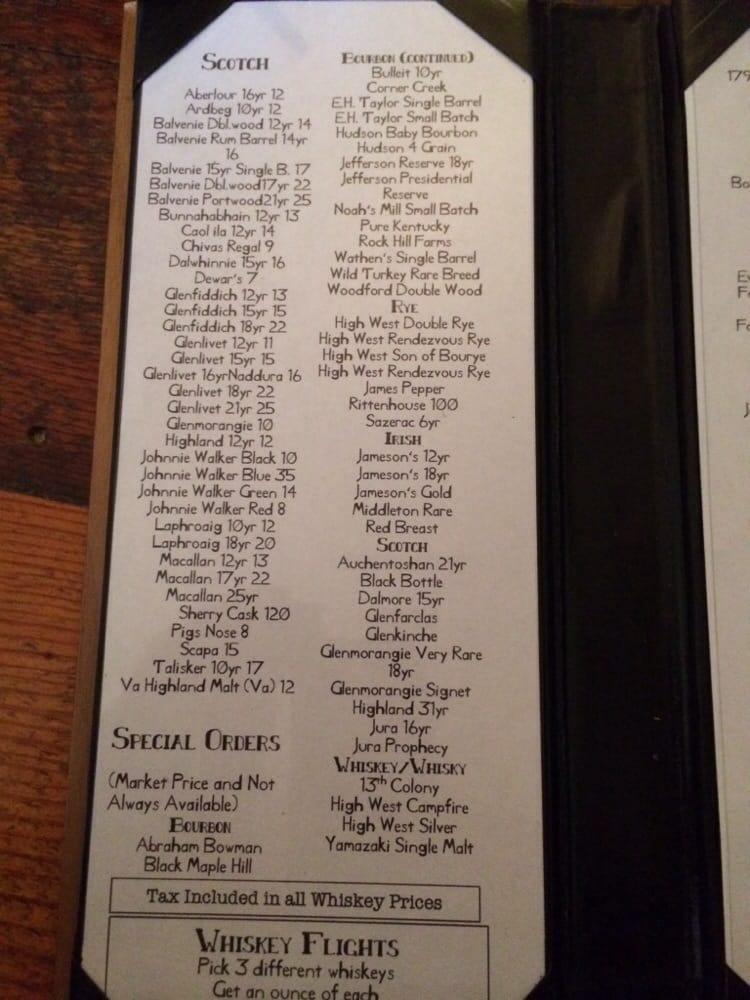 SCOTCH
Aberlour 16yr 12
Ardbeg 10yr 12
Balvenie Dbl.wood 12yr 14
Balvenie Rum Barrel 14yr
16
Balvenie 15yr Single B. 17
Balvenie Dbl.wood17yr 22
Balvenie Portwood21yr 25
Bunnahabhain 12yr 13
Caol ila 12yr 14
Chivas Regal 9
Dalwhinnie 15yr 16
Dewar's 7
Glenfiddich 12yr 13
Glenfiddich 15yr 15
Glenfiddich 18yr 22
Glenlivet 12yr 11
Glenlivet 15yr 15
Glenlivet 16yrNaddura 16
Glenlivet 18yr 22
Glenlivet 21yr 25
Glenmorangie 10
Highland 12yr 12
Johnnie Walker Black 10
Johnnie Walker Blue 35
Johnnie Walker Green 14
Johnnie Walker Red 8
Laphroaig 10yr 12
Laphroaig 18yr 20
Macallan 12yr 13
Macallan 17yr 22
Macallan 25yr
Sherry Cask 120
Pigs Nose 8
Scapa 15
Talisker 10yr 17
Va Highland Malt (Va) 12
SPECIAL ORDERS
(Market Price and Not
Always Available)
BOURBON
Abraham Bowman
Black Maple Hill
BOURBON (CONTINUED)
Bulleit 10yr
Corner Creek
E.H. Taylor Single Barrel
E.H. Taylor Small Batch
Hudson Baby Bourbon
Hudson 4 Grain
Jefferson Reserve 18yr
Jefferson Presidential
Reserve
Noah's Mill Small Batch
Pure Kentucky
Rock Hill Farms
Wathen's Single Barrel
Wild Turkey Rare Breed
Woodford Double Wood
RYE
High West Double Rye
High West Rendezvous Rye
High West Son of Bourye
High West Rendezvous Rye
James Pepper
Rittenhouse 100
Sazerac 6yr
IRISH
Jameson's 12yr
Jameson's 18yr
Jameson's Gold
Middleton Rare
Red Breast
SCOTCH
Auchentoshan 21yr
Black Bottle
Dalmore 15yr
Glenfarclas
Glenkinche
Glenmorangie Very Rare
18yr
Glenmorangie Signet
Highland 31yr
Jura 16yr
Jura Prophecy
WHISKEY/WHISKY
13th Colony
High West Campfire
High West Silver
Yamazaki Single Malt
Tax Included in all Whiskey Prices
WHISKEY FLIGHTS
Pick 3 different whiskeys
Get an ounce of each